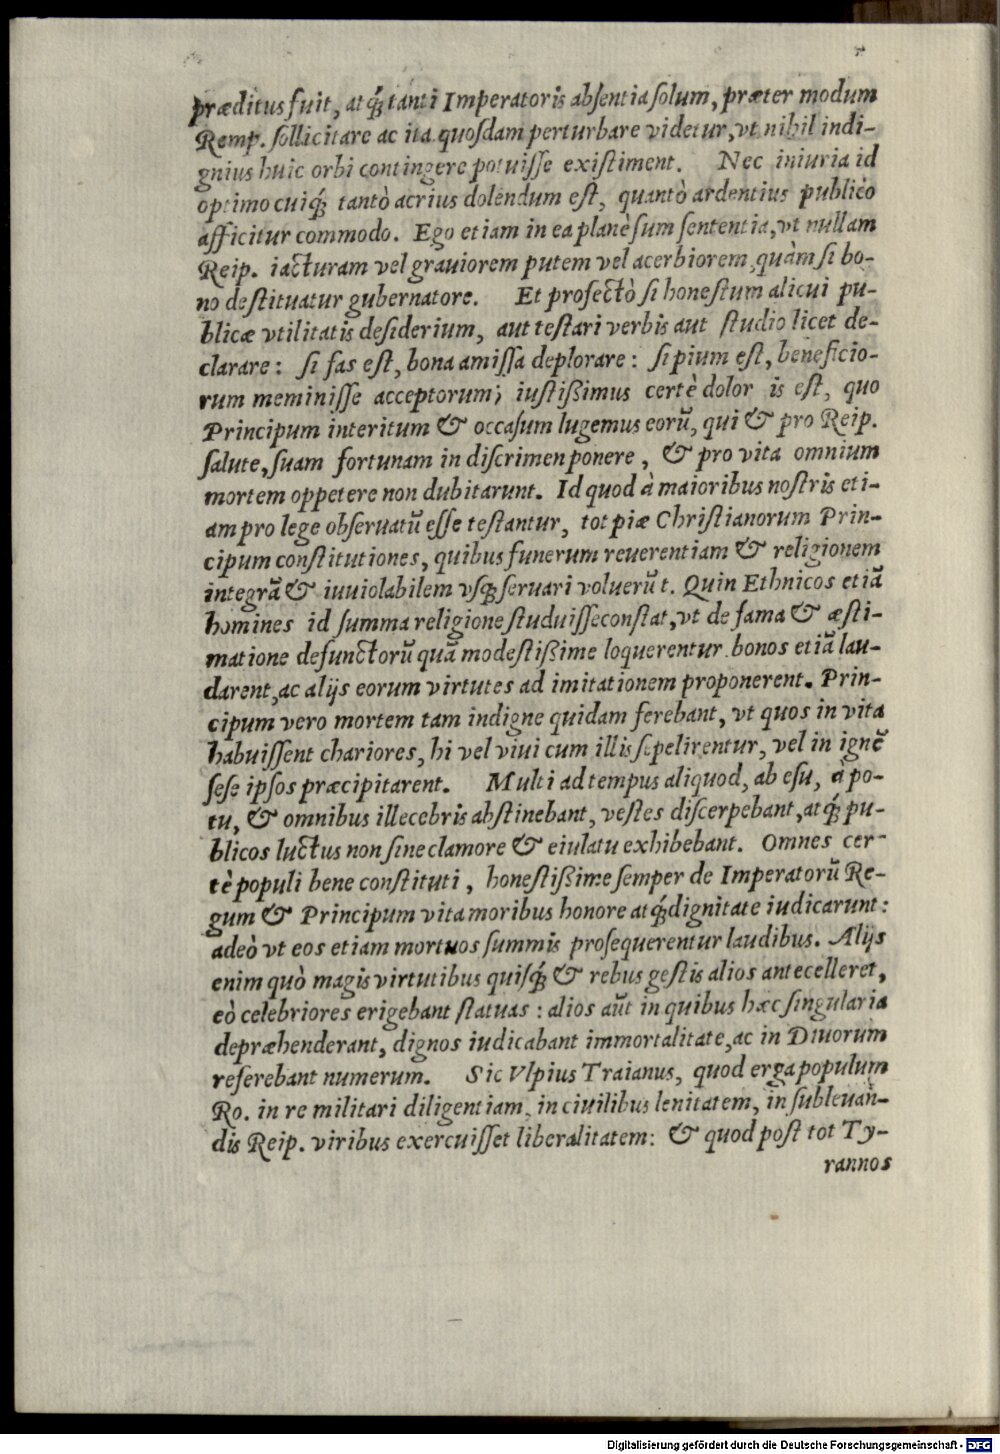 præditus fuit, atq́ꝫ tanti Imperatoris absentia solum, præter modum
Remp. sollicitare ac ita quosdam perturbare videtur, vt nihil indi-
gnius huic orbi contingere potuisse existiment. Nec iniuria id
optimo cuiq́ꝫ tantò acrius dolendum est, quantò ardentius publico
afficitur commodo. Ego etiam in ea planè sum sententia, vt nullam
Reip. iacturam vel grauiorem putem vel acerbiorem, quàm si bo-
no destituatur gubernatore. Et profectò si honestum alicui pu-
blicæ vtilitatis desiderium, aut testari verbis aut studio licet de-
clarare: si fas est, bona amissa deplorare: si pium est, beneficio-
rum meminisse acceptorum; iustißimus certè dolor is est, quo
Principum interitum & occasum lugemus eorũ, qui & pro Reip.
salute, suam fortunam in discrimen ponere, & pro vita omnium
mortem oppetere non dubitarunt. Id quod à maioribus nostris eti-
am pro lege obseruatũ esse testantur, tot piæ Christianorum Prin-
cipum constitutiones, quibus funerum reuerentiam & religionem
integrã & iuuiolabilem vsq́ꝫ seruari voluerũt. Quin Ethnicos etiã
homines id summa religione studuisse constat, vt de fama & æsti-
matione defunctorũ quã modestißime loquerentur bonos etiã lau-
darent, ac alijs eorum virtutes ad imitationem proponerent. Prin-
cipum vero mortem tam indigne quidam ferebant, vt quos in vita
habuissent chariores, hi vel viui cum illis sepelirentur, vel in ignẽ
sese ipsos præcipitarent. Multi ad tempus aliquod, ab esu, à po-
tu, & omnibus illecebris abstinebant, vestes discerpebant, atq́ꝫ pu-
blicos luctus non sine clamore & eiulatu exhibebant. Omnes cer-
tè populi bene constituti, honestißime semper de Imperatorũ Re-
gum & Principum vita moribus honore atq́ꝫ dignitate iudicarunt:
adeò vt eos etiam mortuos summis prosequerentur laudibus. Alijs
enim quò magis virtutibus quisq́ꝫ & rebus gestis alios antecelleret,
eò celebriores erigebant statuas: alios aũt in quibus hæc singularia
depræhenderant, dignos iudicabant immortalitate, ac in Diuorum
referebant numerum. Sic Vlpius Traianus, quod erga populum
Ro. in re militari diligentiam, in ciuilibus lenitatem, in subleuan-
dis Reip. viribus exercuisset liberalitatem: & quod post tot Ty-
rannos
Digitalisierung gefördert durch die Deutsche Forschungsgemeinschaft - DFG